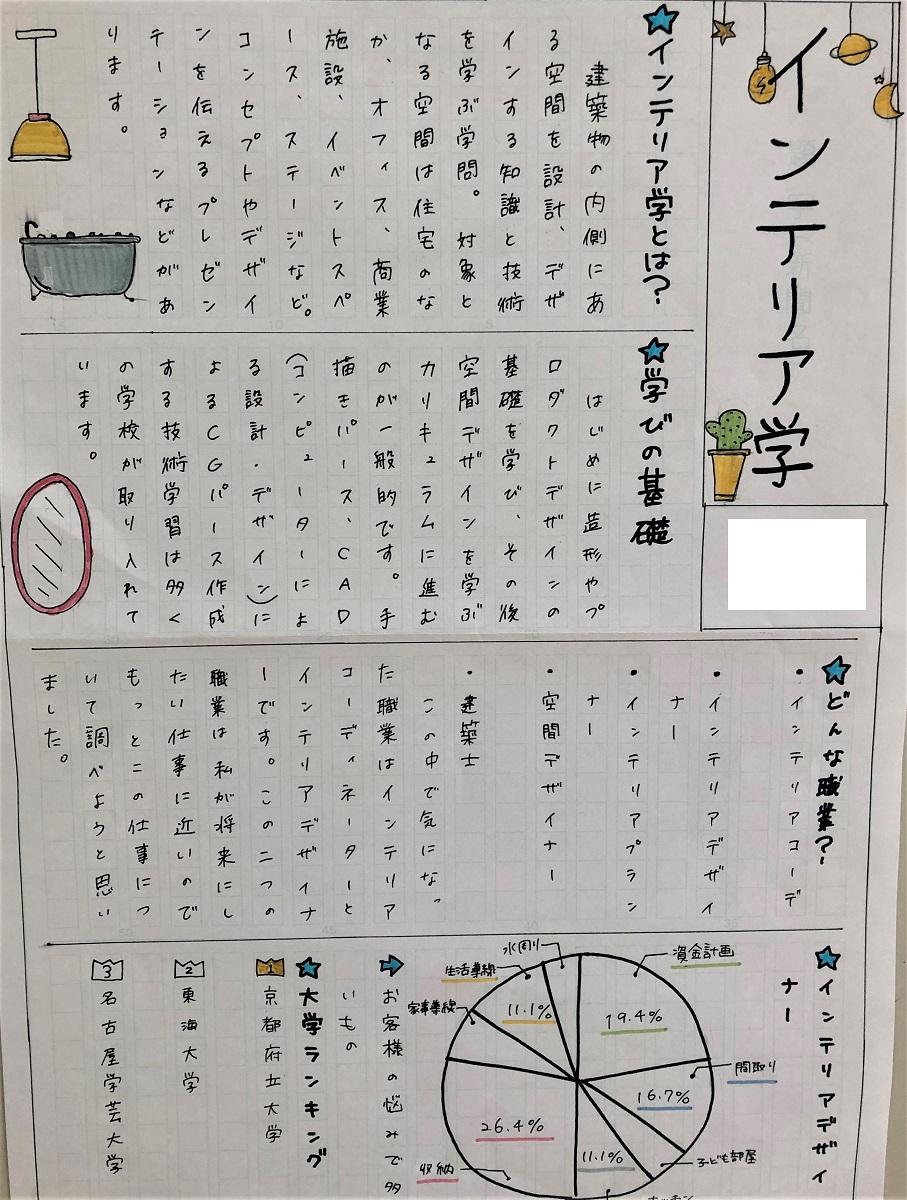 インテリア学
インテリア学とは?
建築物の内側にあ
る空間を設計、デザ
インする知識と技術
を学ぶ学問。対象と
なる空間は住宅のな
か、オフィス、商業
施設、イベントスペ
ース、ステージなど。
コンセプトやデザイ
ンを伝えるプレゼン
テーションなどがあ
ります。
学びの基礎
はじめに造形やプ
ロダクトデザインの
基礎を学び、その後
空間デザインを学ぶ
カリキュラムに進む
のが一般的です。手
描きパース、CAD
(コンピューターによ
る設計・デザイン)に
よるCGパース作成
する技術学習は多く
の学校が取り入れて
います。
どんな職業?
・インテリアコーデ
・インテリアデザイ
ナー
・インテリアプラン
ナー
・空間デザイナー
・建築士
この中で気になっ
た職業はインテリア
コーディネーターと
インテリアデザイナ
ーです。この二つの
職業は私が将来にし
たい仕事に近いので
もっとこの仕事につ
いて調べようと思い
ました。
インテリアデザイ
ナー
資金計画
19.4%
間取り
16.7%
子ども部屋
11.1%
収納
26.4%
家事導線
生活導線
11.1%
水周り
お客様の悩みで多
いもの
大学ランキング
1
京都府立大学
2
東海大学
3
名古屋学芸大学